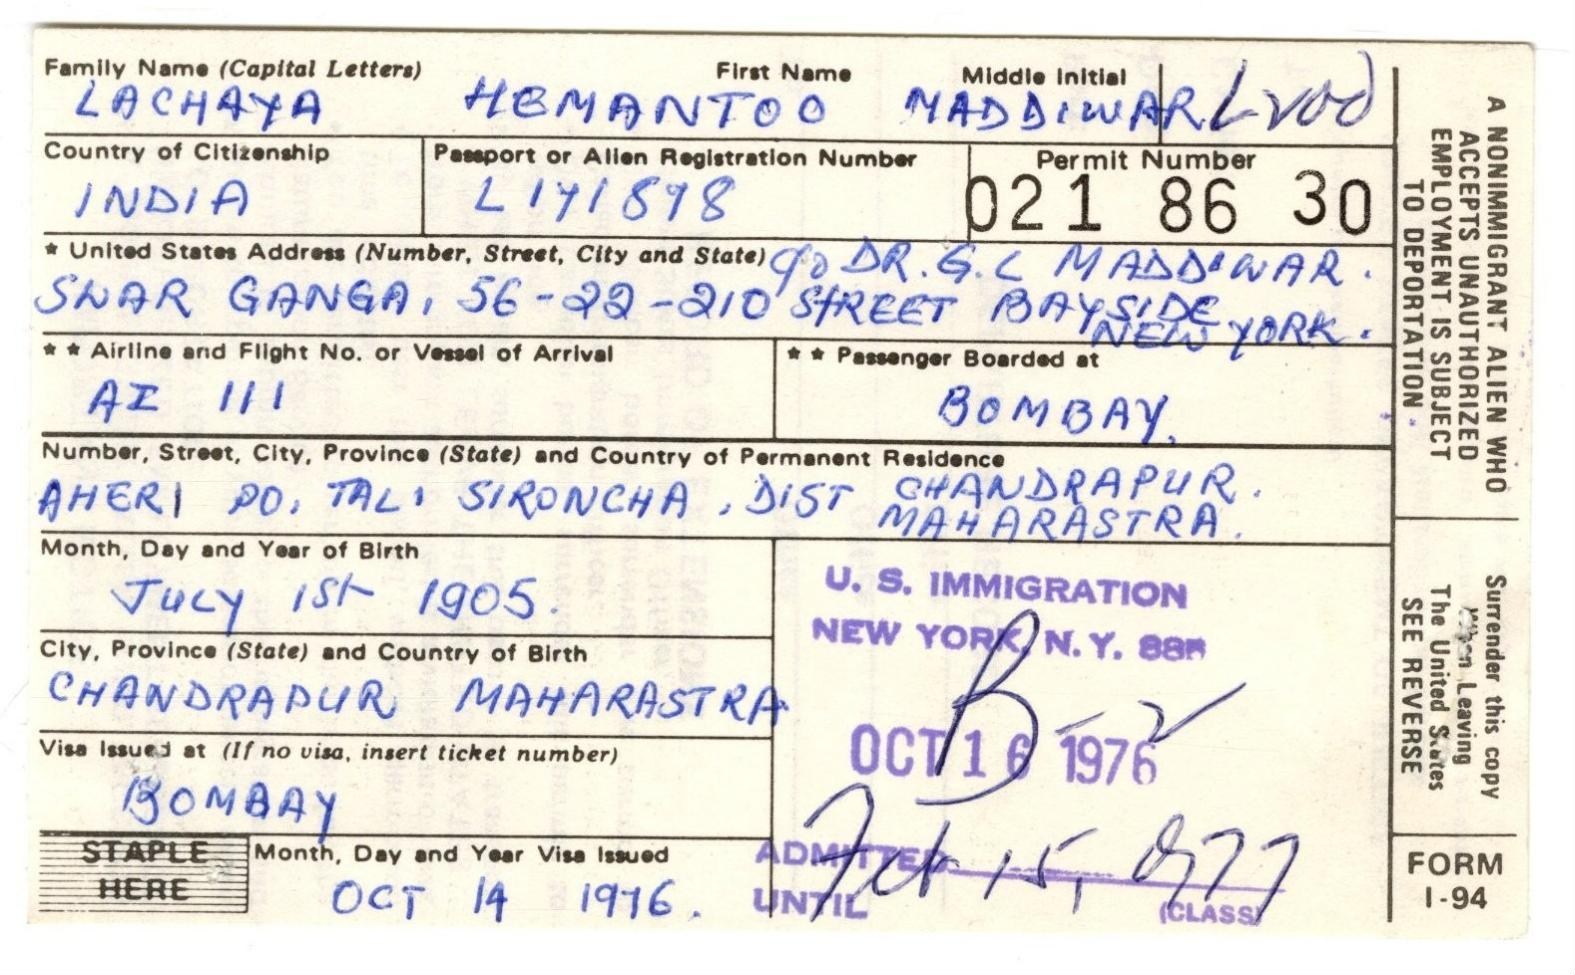 Family Name (Capital Letters) First Name Middle Initial
LACHAYA HEMANTOO MADDIWAR
Country of Citizenship Passport or Alien Registration Number Permit Number
INDIA L 141898 021 86 30
* United States Address (Number, Street, City and State) c/o DR. G.C MADDIWAR.
SWAR GANGA, 56-22-210 STREET BAYSIDE
NEW YORK.
* * Airline and Flight No. or Vessel of Arrival * * Passenger Boarded at
AI 111 BOMBAY,
Number, Street, City, Province (State) and Country of Permanent Residence
AHERI PO, TAL: SIRONCHA, DIST CHANDRAPUR.
MAHARASTRA.
Month, Day and Year of Birth
JULY 1st 1905.
City, Province (State) and Country of Birth
CHANDRAPUR MAHARASTRA
Visa Issued at (If no visa, insert ticket number)
BOMBAY
STAPLE
HERE
Month, Day and Year Visa Issued
OCT 14 1976.
U. S. IMMIGRATION
NEW YORK, N. Y.
B-2
OCT 16 1976
ADMITTED Feb 15, 1977
UNTIL (CLASS)
A NONIMMIGRANT ALIEN WHO
ACCEPTS UNAUTHORIZED
EMPLOYMENT IS SUBJECT
TO DEPORTATION.
Surrender this copy
When Leaving
The United States
SEE REVERSE
FORM
I-94